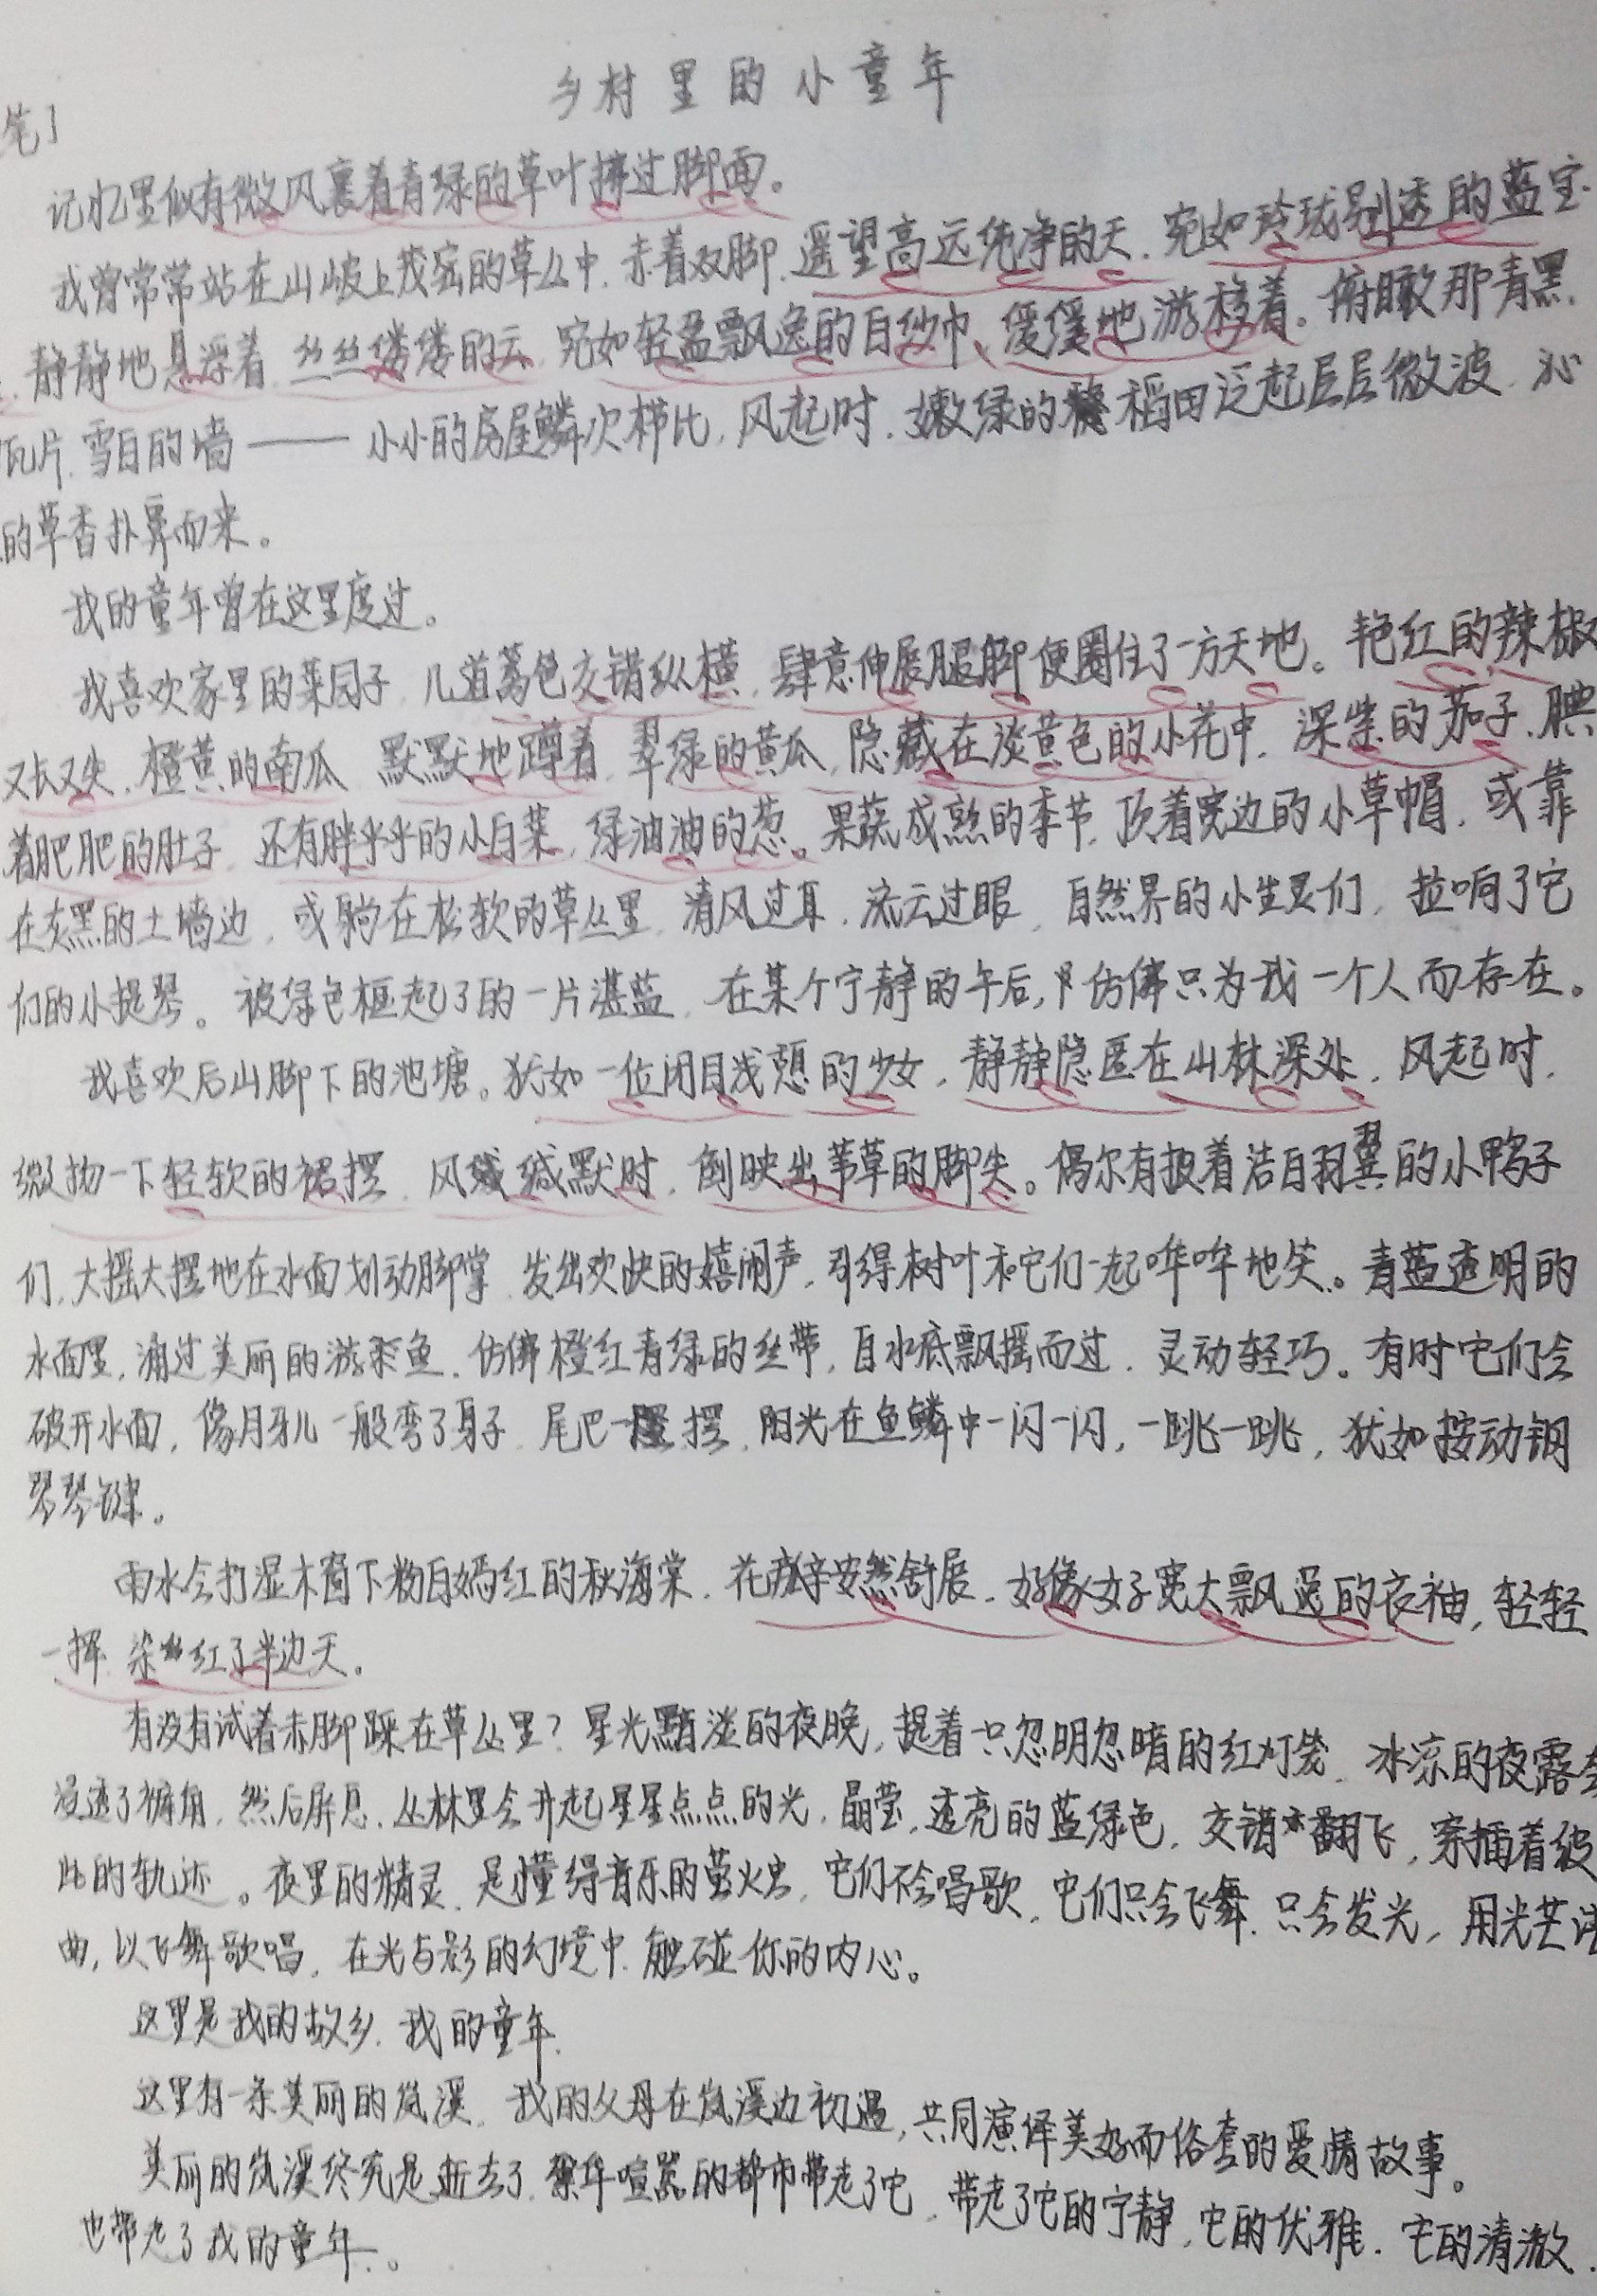 乡村里的小童年
笔]
记忆里似有微风裹着青绿的草叶拂过脚面。
我曾常常站在山坡上茂密的草丛中,赤着双脚,遥望高远纯净的天,宛如玲珑剔透的蓝宝
,静静地悬浮着,丝丝缕缕的云,宛如轻盈飘逸的白纱巾、缓缓地游移着。俯瞰那青黑
瓦片,雪白的墙——小小的房屋鳞次栉比,风起时,嫩绿的稻田泛起层层微波,沁
的草香扑鼻而来。
我的童年曾在这里度过。
我喜欢家里的菜园子,几道篱色交错纵横,肆意伸展腿脚便圈住了一方天地。艳红的辣椒
又长又尖,橙黄的南瓜,默默地蹲着,翠绿的黄瓜,隐藏在淡黄色的小花中,深紫的茄子,腆
着肥肥的肚子,还有胖乎乎的小白菜,绿油油的葱。果蔬成熟的季节,顶着宽边的小草帽,或靠
在灰黑的土墙边,或躺在松软的草丛里,清风过耳,流云过眼,自然界的小生灵们,拉响了它
们的小提琴。被绿色框起了的一片湛蓝,在某个宁静的午后,仿佛只为我一个人而存在。
我喜欢后山脚下的池塘。犹如一位闭目浅憩的少女,静静隐匿在山林深处,风起时,
微拗一下轻软的裙摆,风缄默时,倒映出苇草的脚尖。偶尔有披着洁白羽翼的小鸭子
们,大摇大摆地在水面划动脚掌,发出欢快的嬉闹声,引得树叶和它们一起哗哗地笑。青蓝透明的
水面里,涌过美丽的游鱼,仿佛橙红青绿的丝带,自水底飘摇而过,灵动轻巧。有时它们会
破开水面,像月牙儿一般弯了身子,尾巴一摆,阳光在鱼鳞中一闪一闪,一跳一跳,犹如按动钢
琴琴键。
雨水会打湿木窗下粉白嫣红的秋海棠,花瓣安然舒展,好像女子宽大飘逸的衣袖,轻轻
一挥,染红了半边天。
有没有试着赤脚踩在草丛里?星光黯淡的夜晚,提着一只忽明忽暗的红灯笼,冰凉的夜露会
浸透了裤角,然后屏息,丛林里会升起星星点点的光,晶莹,透亮的蓝绿色,交错翻飞,穿插着彼
此的轨迹。夜里的精灵,是懂得音乐的萤火虫,它们不会唱歌,它们只会飞舞,只会发光,用光芒谱
曲,以飞舞歌唱,在光与影的幻境中,触碰你的内心。
这里是我的故乡,我的童年.
这里有一条美丽的岚溪,我的父母在岚溪边初遇,共同演绎美好而俗套的爱情故事。
美丽的岚溪终究是逝去了,繁华喧嚣的都市带走了它,带走了它的宁静,它的优雅,它的清澈,
也带走了我的童年。